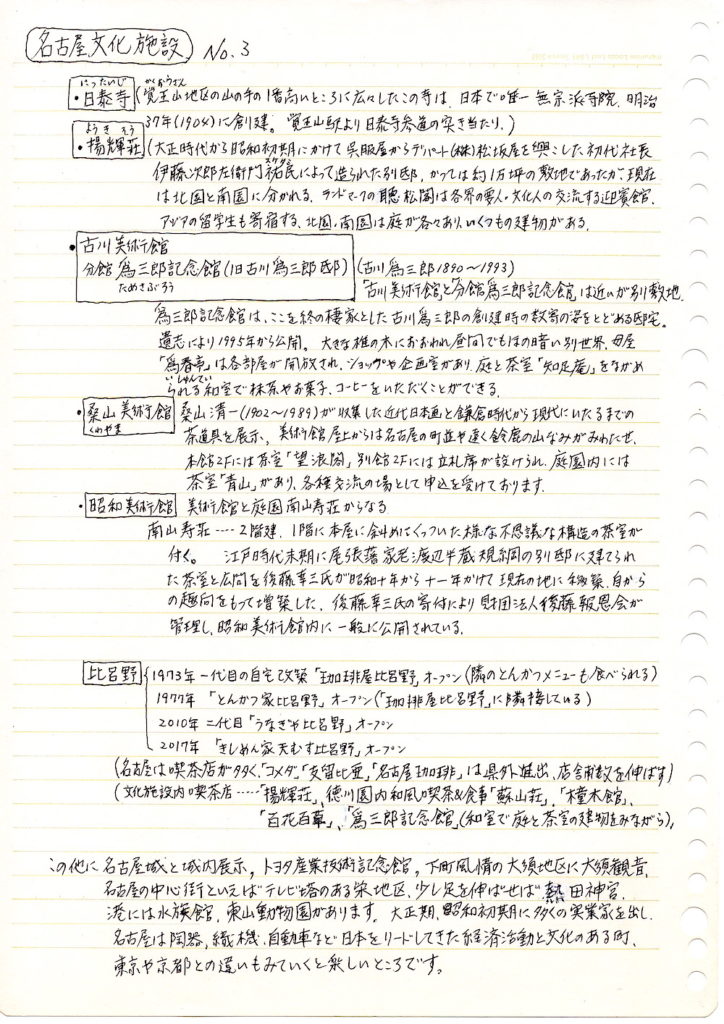 名古屋文化施設 No.3
にったいじ かくおうざん
・日泰寺(覚王山地区の山の手の1番高いところに広々としたこの寺は、日本で唯一無宗派寺院、明治
37年(1904)に創建。覚王山駅より日泰寺参道の突き当たり。)
ようきそう
・揚輝荘(大正時代から昭和初期にかけて呉服屋からデパート(株)松坂屋を興こした初代社長
スケタミ
伊藤次郎左衛門祐民によって造られた別邸、かつては約1万坪の敷地であったが、現在
は北園と南園に分かれる。ランドマークの聴松閣は各界の要人・文化人の交流する迎賓館、
アジアの留学生も寄宿する、北園、南園は庭が各々あり、いくつもの建物がある。
・古川美術館
分館 爲三郎記念館(旧古川爲三郎邸) (古川爲三郎1890〜1993)
ためさぶろう 「古川美術館」と「分館爲三郎記念館」は近いが別敷地。
爲三郎記念館は、ここを終の棲家とした古川爲三郎の創建時の数寄の姿をとどめる邸宅。
遺志により1995年から公開。大きな椎の木におおわれ、昼間でもほの暗い別世界、母屋
「爲春亭」は各部屋が開放され、ショップや企画室があり、庭と茶室「知足庵」をながめ
いしゅんてい
られる和室で抹茶やお菓子、コーヒーをいただくことができる。
・桑山美術館 桑山清一(1902〜1989)が収集した近代日本画と鎌倉時代から現代にいたるまでの
くわやま
茶道具を展示、美術館屋上からは名古屋の町並や遠く鈴鹿の山なみがみわたせ、
本館2Fには茶室「望浪閣」別館2Fには立札席が設けられ、庭園内には
茶室「青山」があり、各種交流の場として申込を受けております。
・昭和美術館 美術館と庭園南山寿荘からなる
南山寿荘・・・・2階建、1階に本屋に斜めにくっついた様な不思議な構造の茶室が
付く。 江戸時代末期に尾張藩家老渡辺半蔵規綱の別邸に建てられ
た茶室と広間を後藤幸三氏が昭和十年から十一年かけて現在の地に移築、自から
の趣向をもって増築した、後藤幸三氏の寄付により財団法人後藤報恩会が
管理し、昭和美術館内に一般に公開されている。
比呂野 1973年一代目の自宅改築「珈琲屋比呂野」オープン(隣のとんかつメニューも食べられる)
1977年 「とんかつ家比呂野」オープン(「珈琲屋比呂野」に隣接している)
2010年 二代目「うなぎや比呂野」オープン
2017年 「きしめん家天むす比呂野」オープン
(名古屋は喫茶店が多く、「コメダ」「支留比亜」「名古屋珈琲」は県外進出、店舗数を伸ばす)
(文化施設内喫茶店・・・・・「揚輝荘」、徳川園内和風喫茶&食事「蘇山荘」、「橦木館」、
「百花百草」、「爲三郎記念館」(和室で庭と茶室の建物をみながら)、
この他に名古屋城と城内展示、トヨタ産業技術記念館、下町風情の大須地区に大須観音、
名古屋の中心街といえばテレビ塔のある栄地区、少し足を伸ばせば熱田神宮、
港には水族館、東山動物園があります。大正期、昭和初期に多くの実業家を出し、
名古屋は陶器、織機、自動車など日本をリードしてきた経済活動と文化のある町、
東京や京都との違いもみていくと楽しいところです。